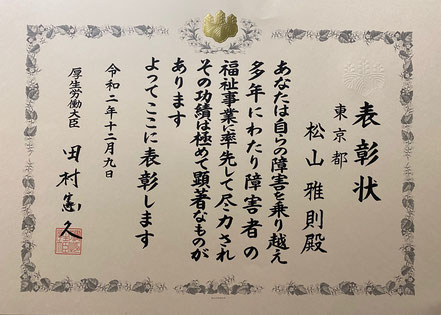 表彰状
東京都
松山雅則殿
あなたは自らの障害を乗り越え
多年にわたり障害者の
福祉事業に率先して尽力され
その功績は極めて顕著なものが
あります
よってここに表彰します
令和二年十二月九日
厚生労働大臣 田村憲久